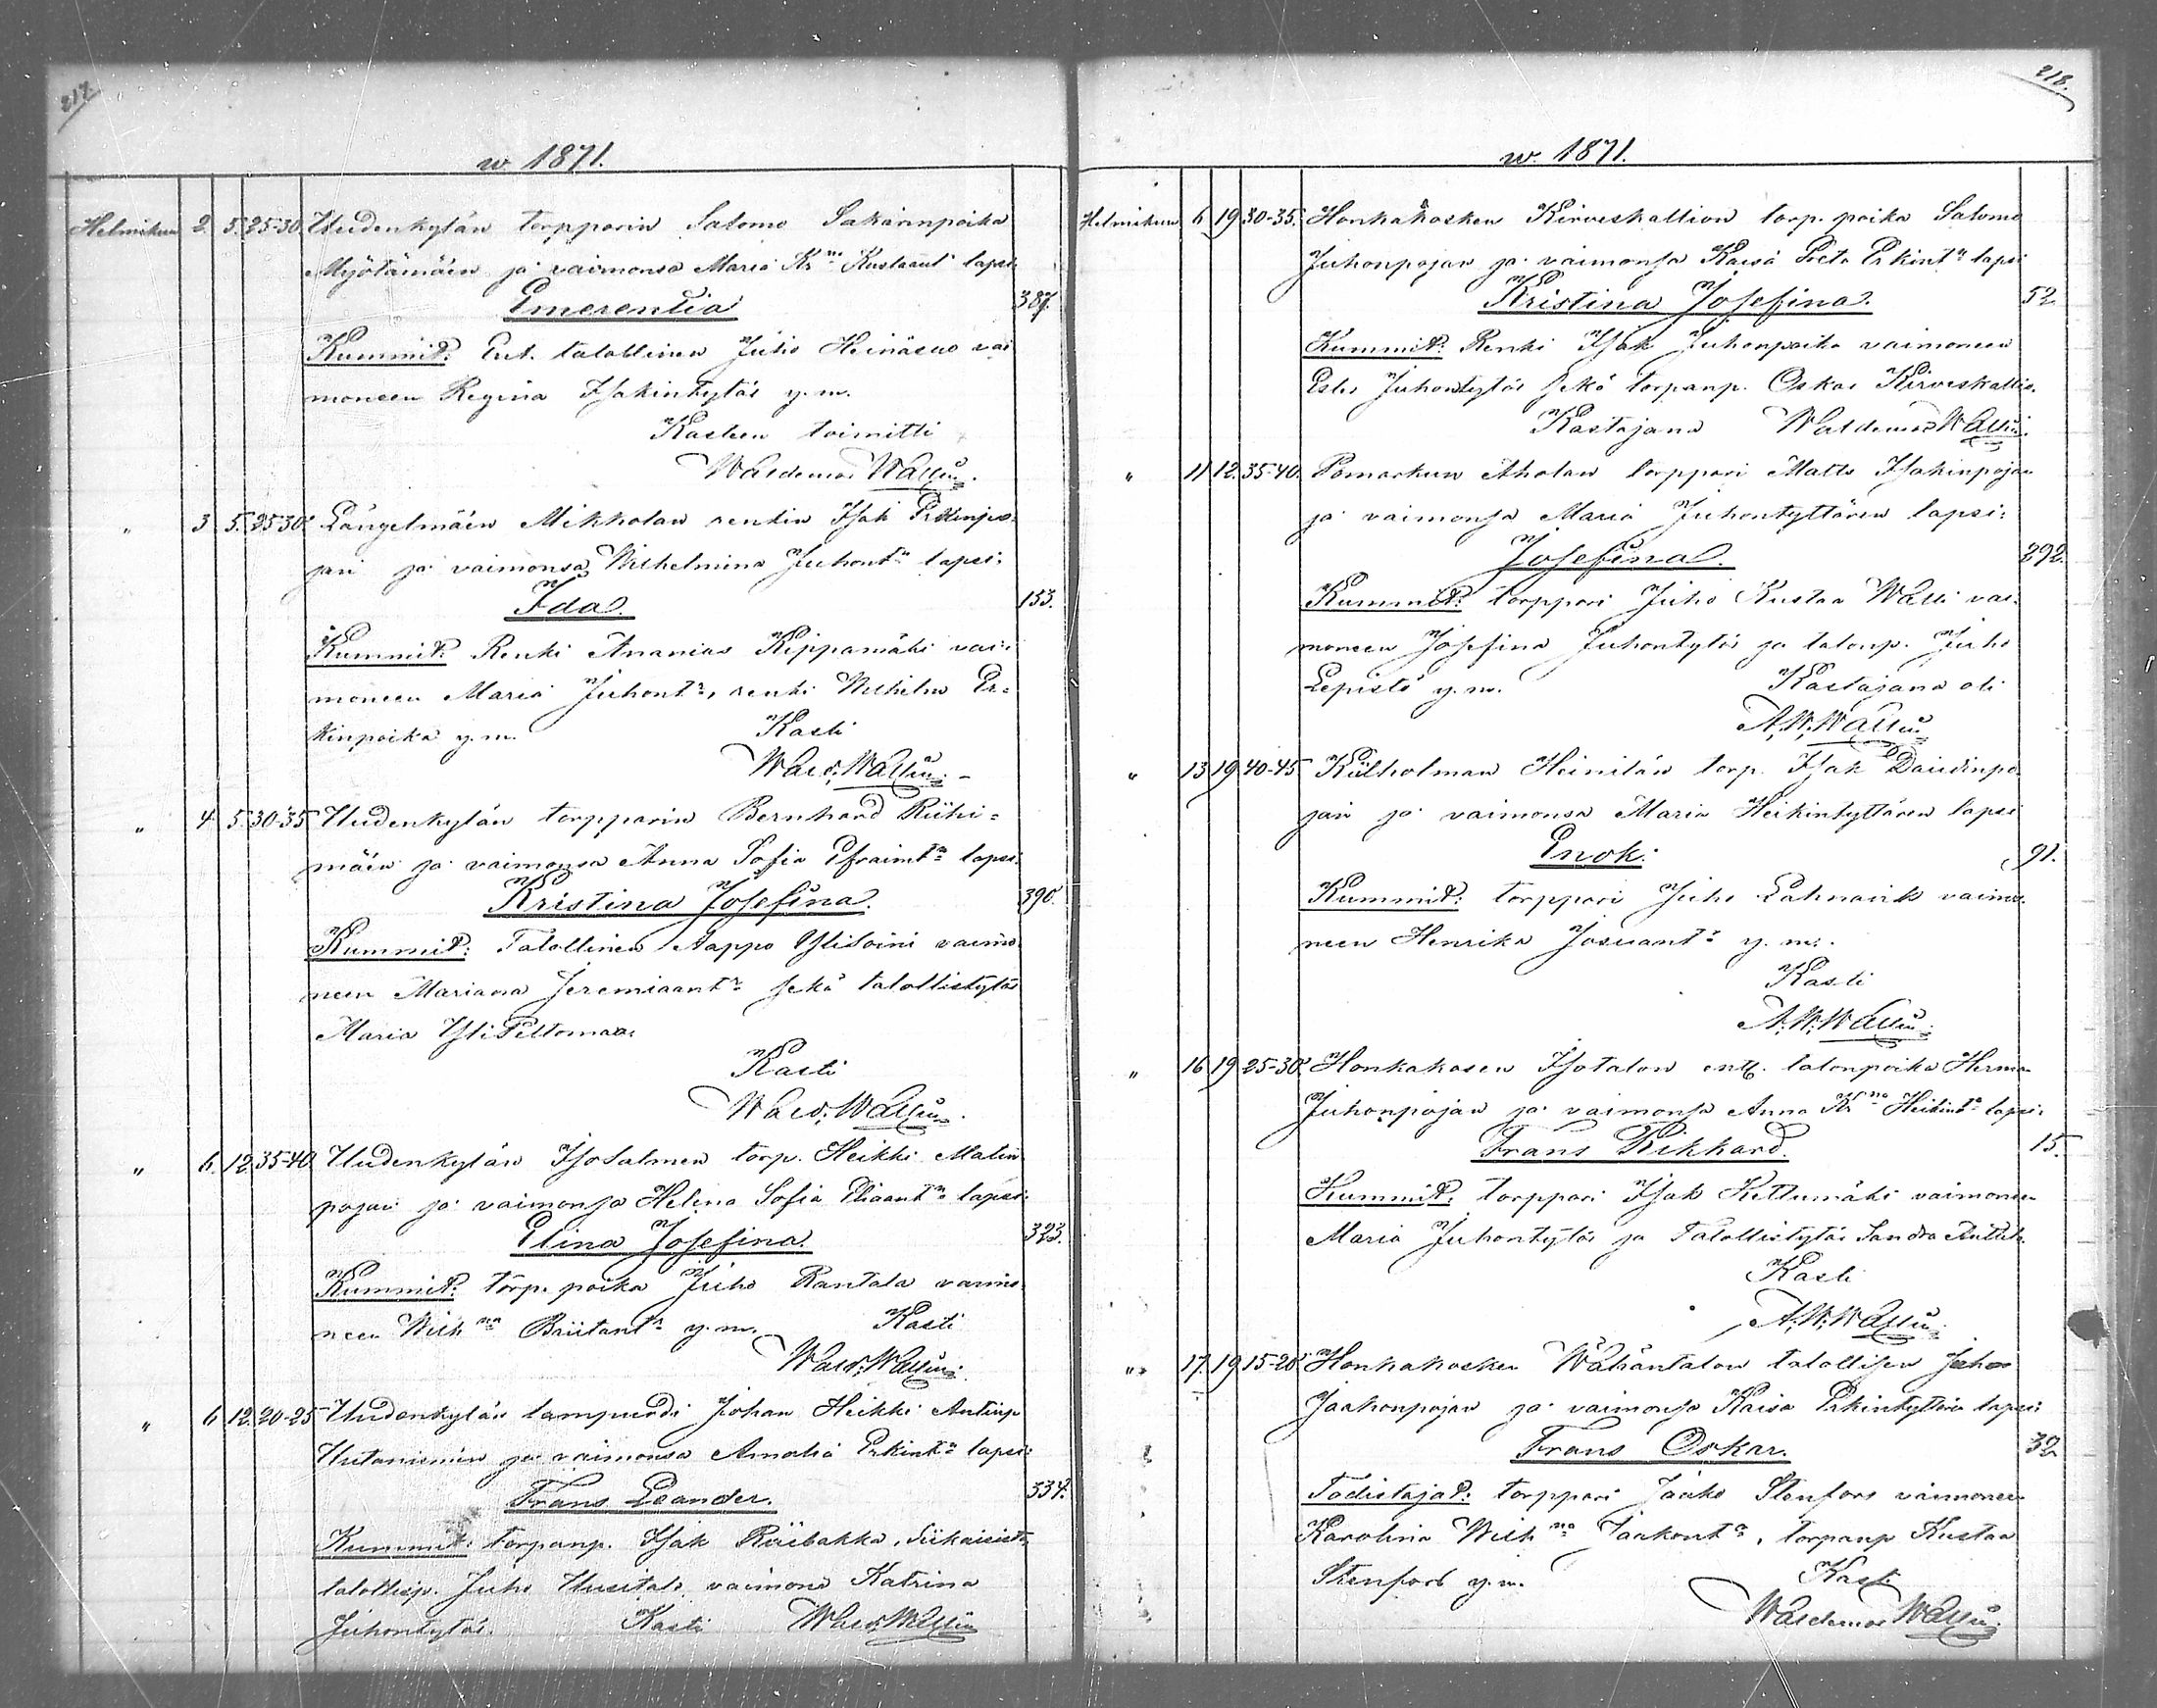 217.
w. 1871.
Helmikuu 2. 5. 25-30. Uudenkylän torpparin Salomo Sakarinpoika
Myötämäen ja vaimonsa Maria Kr:na Kustaant: lapsi
Emerentia 387.
Kummit: Ent. talollinen Juho Heinäsuo vai
moneen Regina Isakintytär y.m.
Kasteen toimitti
Waldemar Wallin.
" 3 5. 25-30. Längelmäen Mikkolan renkin Isak Erkinpo-
jan ja vaimonsa Wilhelmina Juhont:n lapsi:
Ida. 153.
Kummit: Renki Ananias Kippamäki vai:
moneen Maria Juhont:r, renki Wilhelm Er-
kinpoika y.m. Kasti
Wald. Wallin.
" 4. 5. 30-35 Uudenkylän torpparin Bernhard Riihi-
mäen ja vaimonsa Anna Sofia Efraimt:n lapsi.
Kristina Josefina. 390.
Kummit: Talollinen Aappo YliSoini vaimo
neen Mariana Jeremiaant:r sekä talollistytär
Maria YliPeltomaa.
Kasti
Wald. Wallin.
" 6. 12. 35-40 Uudenkylän IsoSalmen torp. Heikki Matin
pojan ja vaimonsa Helena Sofia Eliaant:n lapsi:
Elina Josefina. 323.
Kummit: torp. poika Juho Rantala vaimo
neen Wilh:na Briitant:r y.m. Kasti
Wald. Wallin.
" 6. 12. 20-25 Uudenkylän lampuodi Johan Heikki Antinp.
Uutaniemen ja vaimonsa Amalia Erkint:n lapsi:
Frans Leander. 334.
Kummit: torpanp. Isak Riibakka, Siikaisist.
talollisp. Juho Uusitalo vaimons Katrina
Juhontytär. Kasti Wald. Wallin
218.
w. 1871.
Helmikuun 6 19 30-35. Honkakosken Kirveskallion torp. poika Salomo
Juhonpojan ja vaimonsa Kaisa Greta Erkint:n lapsi
Kristina Josefina. 52.
Kummit: Renki Isak Juhonpoika vaimoneen
Ester Juhontytär sekä torpanp. Oskar Kirveskallio.
Kastajana Waldemar Wallin.
" 11 12. 35-40. Pomarkun Aholan torppari Matts Isakinpojan
ja vaimonsa Maria Juhontyttären lapsi:
Josefina. 292.
Kummit: torppari Juho Kustaa Walli vai-
moneen Josefina Juhontytär ja talonp. Juho
Lepistö y.m. Kastajana oli
A. W. Wallin
" 13 19 40-45 Kiilholman Heinilän torp. Isak Davidinpo
jan ja vaimonsa Maria Heikintyttären lapsi
Enok. 91.
Kummit: torppari Juho Lahnanik vaimo-
neen Henrika Josuant:r y. m.
Kasti
A. W. Wallin.
" 16 19 25-30. Honkakosen Isotalon entl. talonpoika Herman
Juhonpojan ja vaimonsa Anna Kr:na Heikint:n lapsi:
Frans Rikhard. 15.
Kummit: torppari Isak Kettumäki vaimoneen
Maria Juhontytär ja Talollistytär Sandra
Kasti
A. W. Wallin.
" 17. 19 15-20. Honkakosken Wähäntalon talollisen Juho
Jaakonpojan ja vaimonsa Kaisa Erkintyttären lapsi:
Frans Oskar. 32
Todistajat: torppari Jaako Stenfors vaimoneen
Karolina Wilh:na Jaakont:r, torpanp Kustaa
Stenfors y.m. Kasti
Waldemar Wallin.